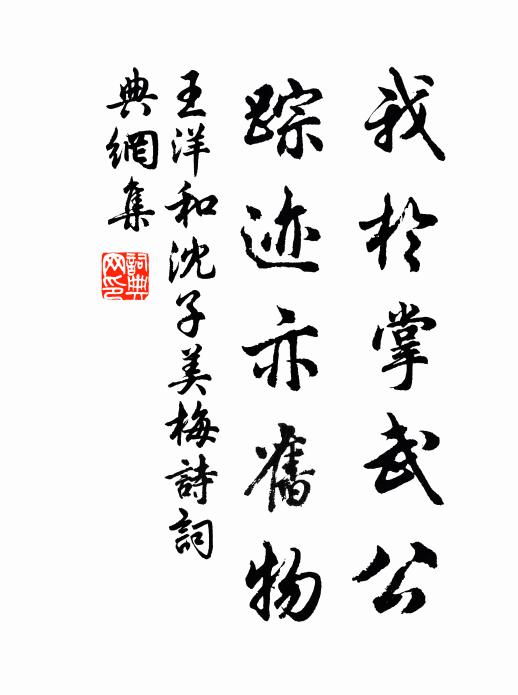 我於掌武公
踪迹亦舊物
王洋和沈子美梅詩詞
典網集
詞典
网印